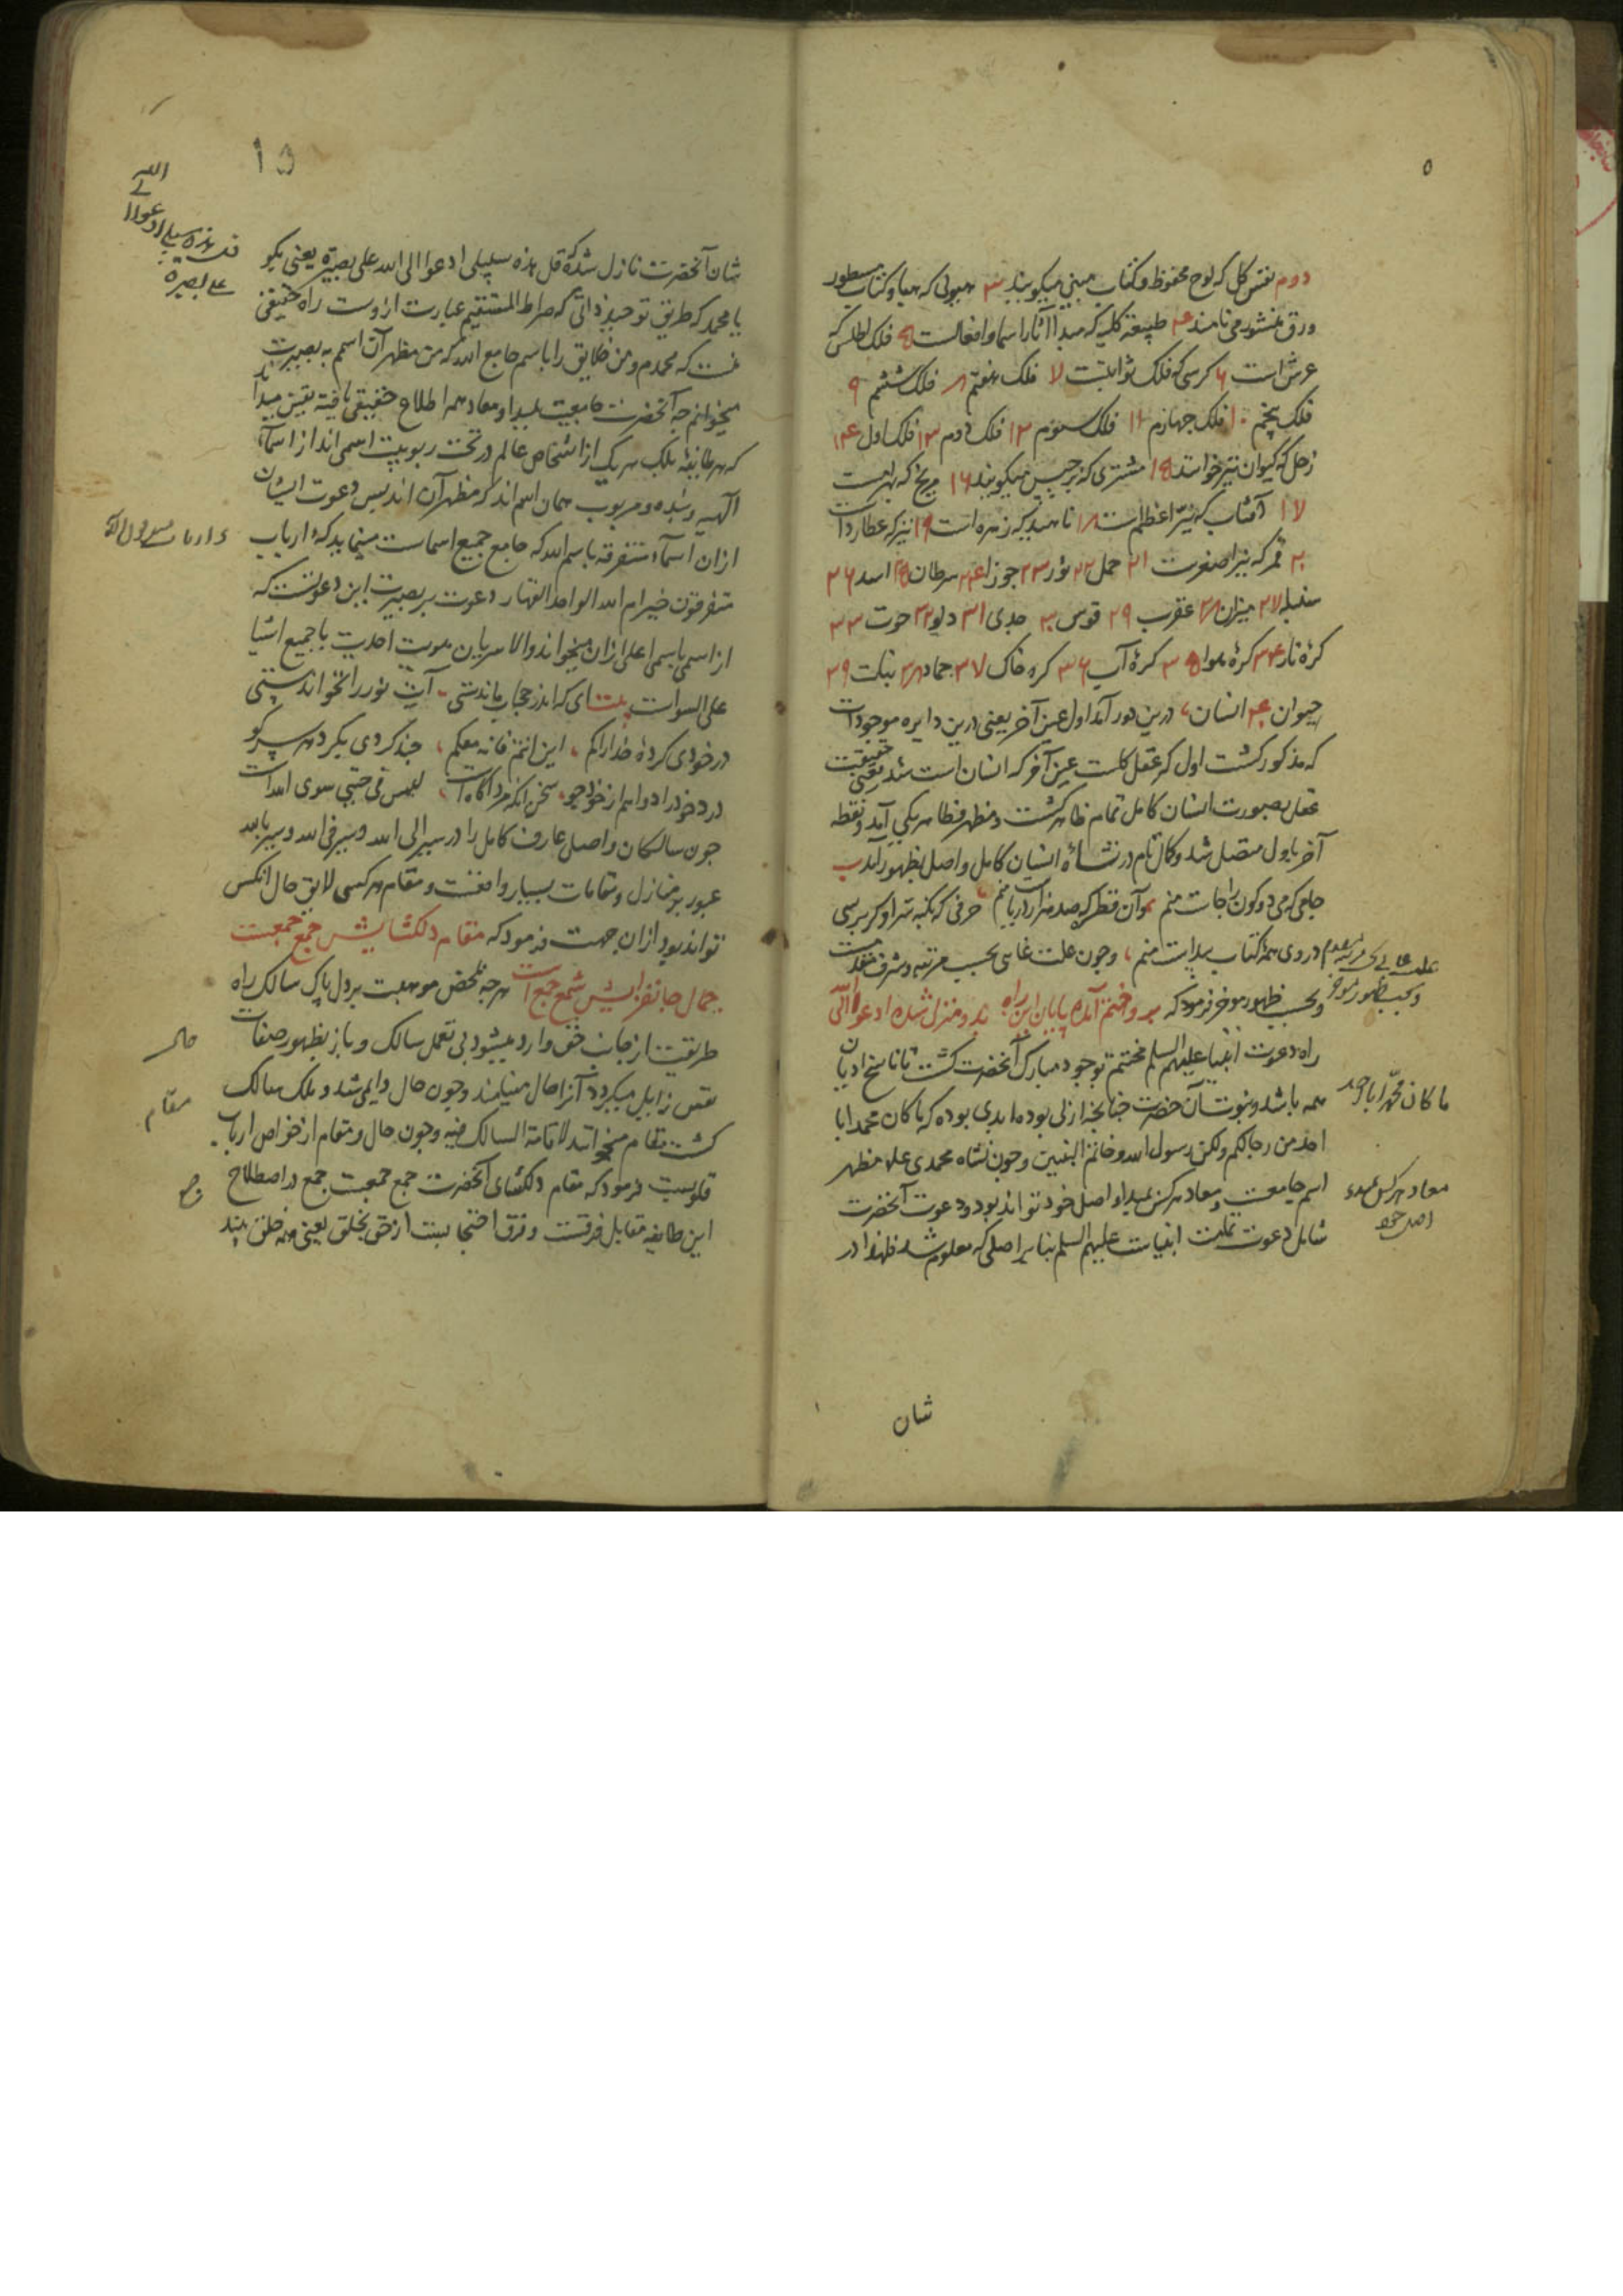 ۵
دوم نفس کل که لوح محفوظ و کتاب مبین میگویند ۳ هیولی که هبا و کتاب مسطور
ورق منشور می نامند ۴ طبیعة کلیه که مبدأ آثار اسما و افعالست ۵ فلک اطلس که
عرش است ۶ کرسی که فلک ثوابتست ۷ فلک هفتم ۸ فلک ششم ۹
فلک پنجم ۱۰ فلک چهارم ۱۱ فلک سوم ۱۲ فلک دوم ۱۳ فلک اول ۱۴
زحل که کیوان نیز خوانند ۱۵ مشتری که برجیس میگویند ۱۶ مریخ که بهرامست
۱۷ آفتاب که نیّر اعظم است ۱۸ ناهید که زهره است ۱۹ تیر که عطارد است
۲۰ قمر که نیر اصغرست ۲۱ حمل ۲۲ ثور ۲۳ جوزا ۲۴ سرطان ۲۵ اسد ۲۶
سنبله ۲۷ میزان ۲۸ عقرب ۲۹ قوس ۳۰ جدی ۳۱ دلو ۳۲ حوت ۳۳
کرۀ نار ۳۴ کرۀ هوا ۳۵ کرۀ آب ۳۶ کره خاک ۳۷ جماد ۳۸ نبات ۳۹
حیوان ۴۰ انسان، درین دور آمد اول عین آخر یعنی درین دایره موجودات
که مذکور گشت اول که عقل کلست عین آخر که انسان است شد یعنی حقیقت
عقل بصورت انسان کامل تمام ظاهر گشت و مظهر و ظاهر یکی آمد و نقطه
آخر باول متصل شد و کمال تام در نشأۀ انسان کامل واصل بظهور آمد
جامی که می دو کون را جاست منم آن قطره که صد هزار دریاست منم، حرفی که بکنه سر او گر برسی
در وی همه کتاب پیداست منم، و چون علت غائی بحسب مرتبه و شرف مقدمست
و بحسب ظهور موخر فرمود که برو ختم آمده پایان این راه بدو منزل شده ادعوا الی الله
راه دعوت انبیا علیهم السلم مختتم بوجود مبارک آنحضرت گشت تا ناسخ ادیان
همه باشد و نبوت آن حضرت چنانچه ازلی بوده ابدی بوده که ما کان محمد ابا
احد من رجالکم ولکن رسول الله و خاتم النبیین و چون نشاه محمدی علم مظهر
اسم جامعست و معاد هر کس بمبدا و اصل خود تواند بود و دعوت آنحضرت
شامل دعوت تمامت انبیاست علیهم السلم بنابر اصلی که معلوم شد فلهذا در
ما کان محمّد ابا احد
معاد هر کس بمبدء
اصل خود
شان
۱۵
شان آنحضرت نازل شده که قل هذه سبیلی ادعوا الی الله علی بصیرة یعنی بگو
یا محمد که طریق توحید ذاتی که صراط المستقیم عبارت ازوست راه حقیقی
منست که محمدم و من خلایق را باسم جامع الله که من مظهر آن اسمم به بصیرت
میخوانم چه آنحضرت جامعیت بمبدا و معاد همه اطلاع حقیقی یافته
که هر طایفه بلک هر یک از اشخاص عالم در تحت ربوبیت اسمی اند از اسماء
الهیه و بنده و مربوب همان اسم اند که مظهر آن اند پس دعوت ایشان
ازان اسماء متفرقه باسم الله که جامع جمیع اسماست مینماید که ءارباب
متفرقون خیر ام الله الواحد القهار دعوت بر بصیرت این دعوتست که
از اسمی باسمی اعلی ازان میخواند والا سریان هویت احدیت با جمیع اشیا
علی السواست بیت ای که اندر حجاب ماندستی آیت نور را نخواندستی
در خودی کردۀ خدا را گم، این انتم فانه معکم، چند گردی بگرد هر سر کو
درد خود را دوا هم از خود جو، سخن آنکه مرد آگاه است، لیس فی جبتی سوی الله است
چون سالکان واصل عارف کامل را در سیر الی الله و سیر فی الله و سیر بالله
عبور بر منازل و مقامات بسیار واقعست و مقام هر کسی لایق حال آنکس
تواند بود ازان جهت فرمود که مقام دلگشایش جمع جمعست
جمال جانفزایش شمع جمع است هر چه بمحض موهبت بر دل پاک سالک راه
طریقت از جانب حق وارد میشود بی تعمل سالک و باز بظهور صفات
نفس زایل میگردد آنرا حال مینامند و چون حال دایمی شد و ملک سالک
گشت مقام میخوانند لاقامة السالک فیه و چون حال و مقام از خواص ارباب
قلوبست فرمود که مقام دلگشای آنحضرت جمع جمعست جمع در اصطلاح
این طایفه مقابل فرقست و فرق احتجابست از حق بخلق یعنی همه خلق بیند
حال
مقام